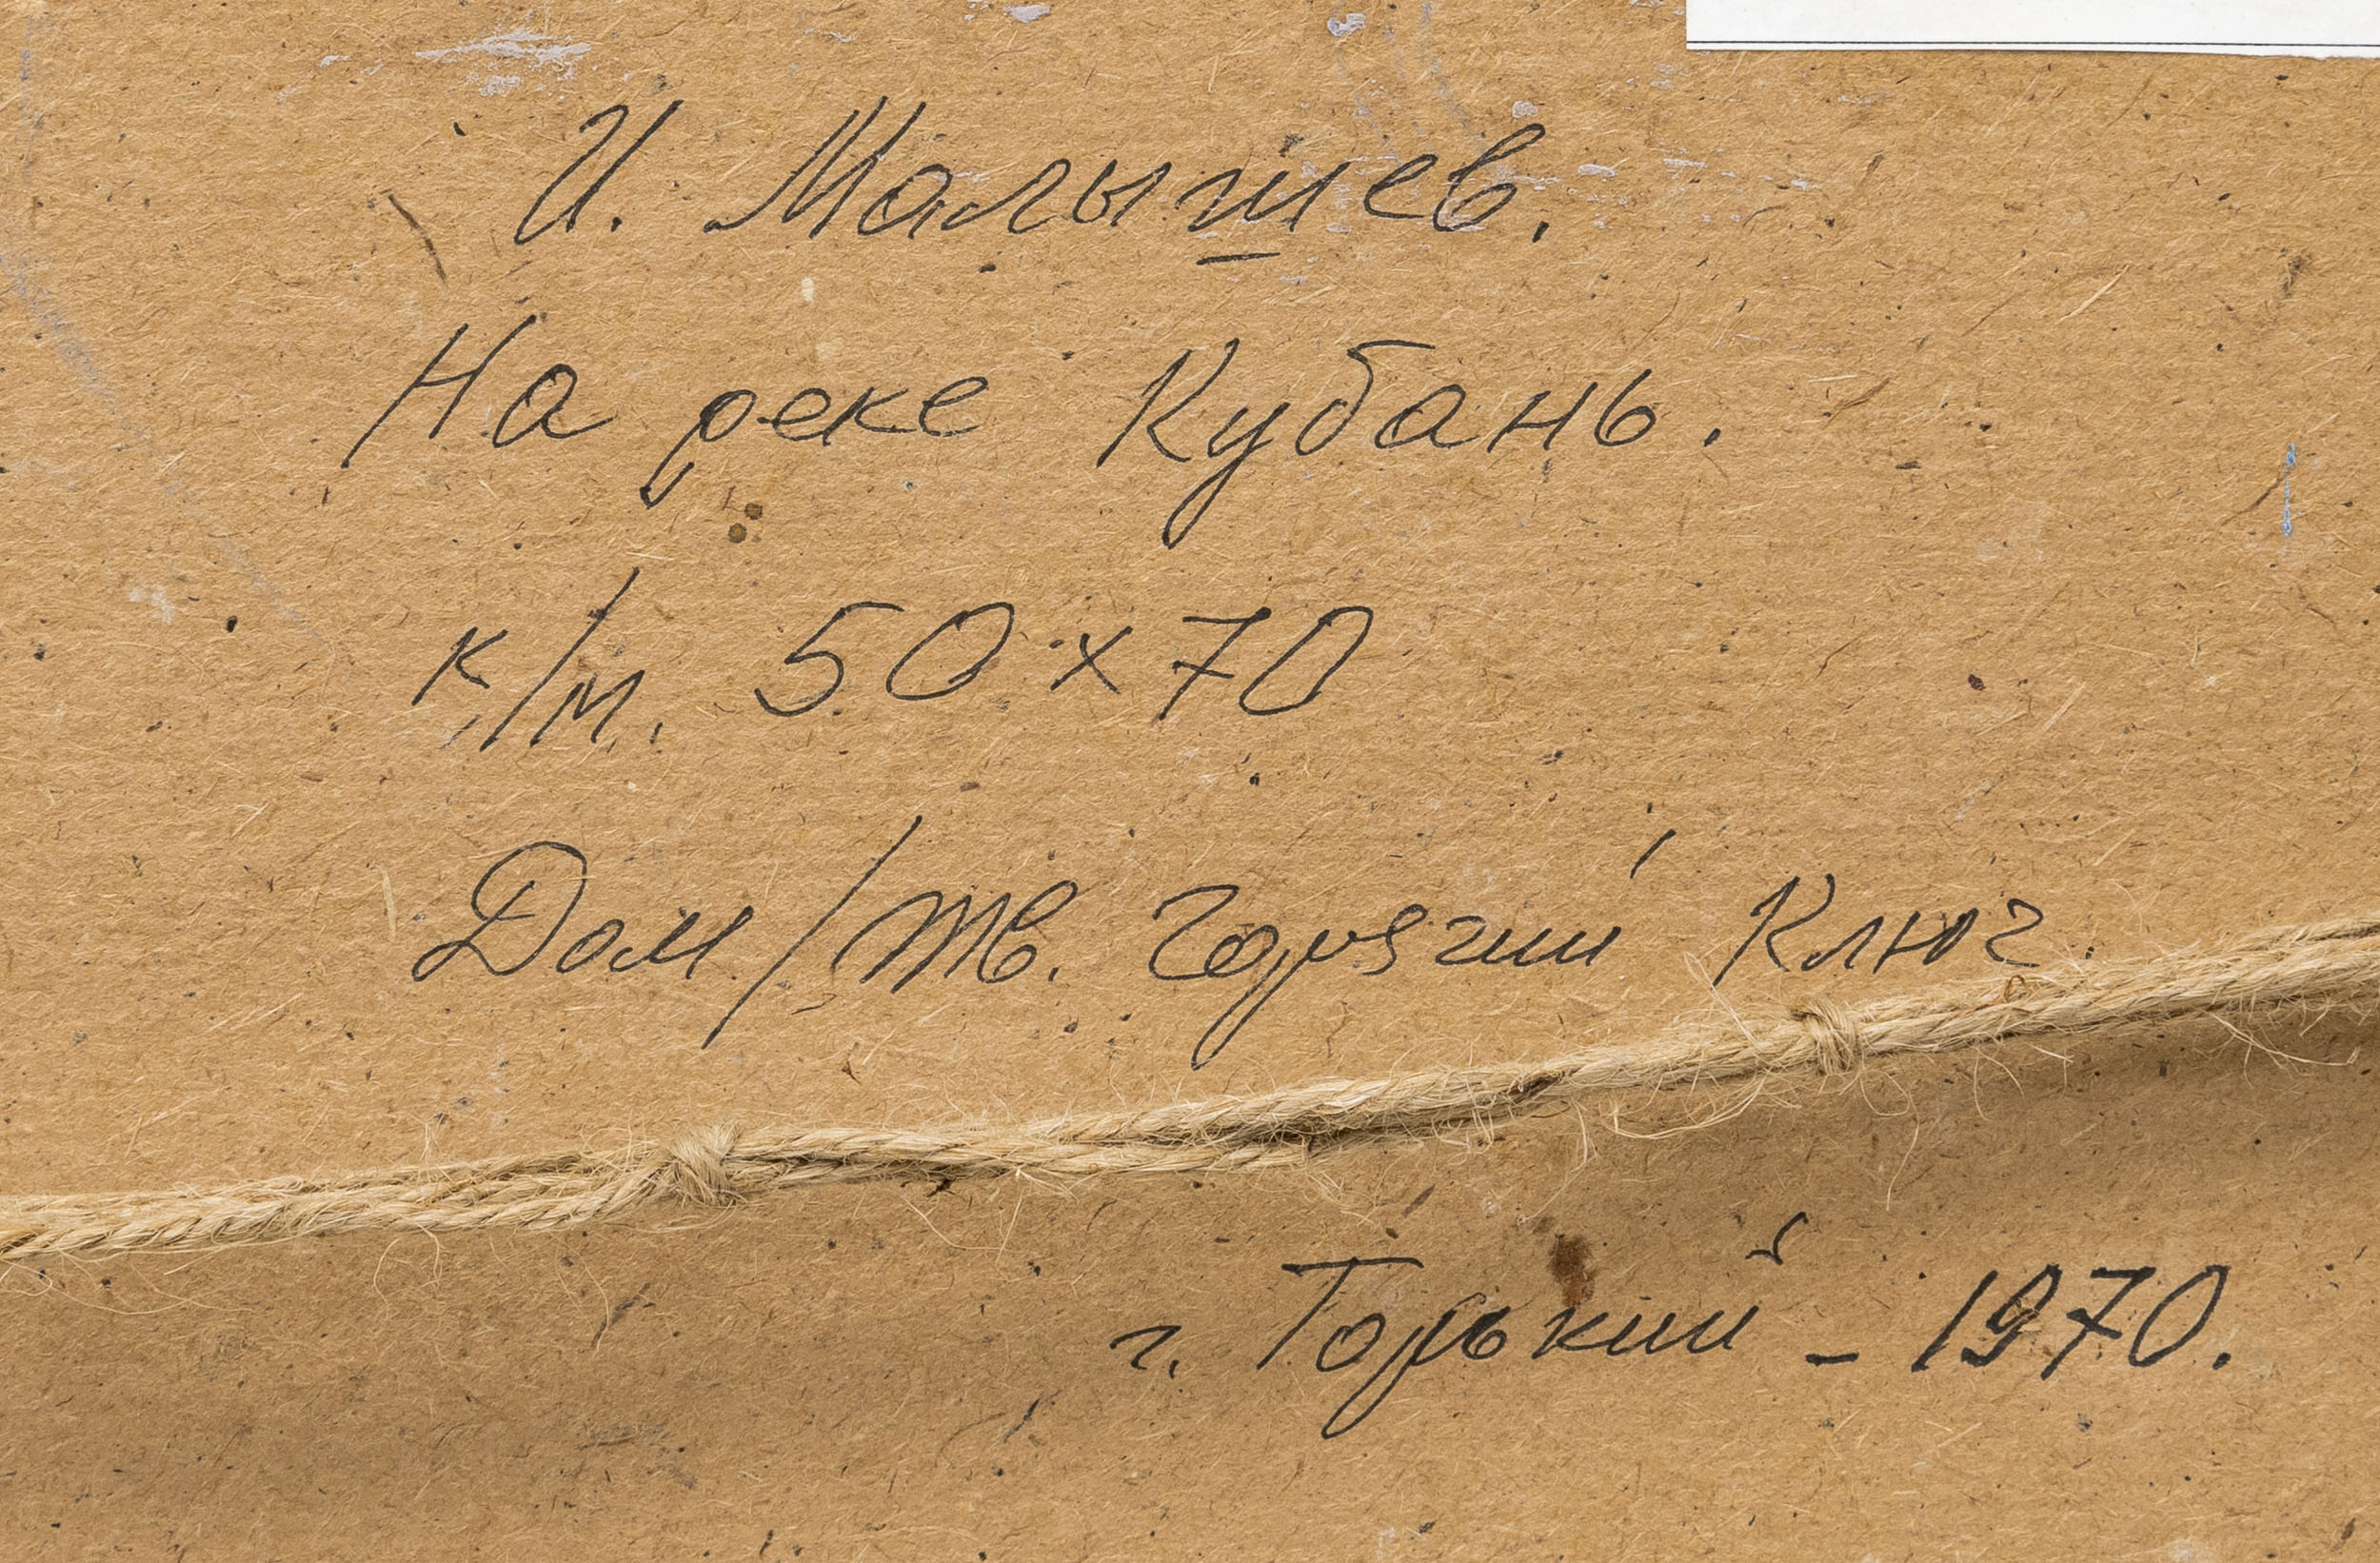 И. Малышев.
На реке Кубань.
к/м. 50х70
Дом/тв. Горячий Ключ.
г. Горький – 1970.